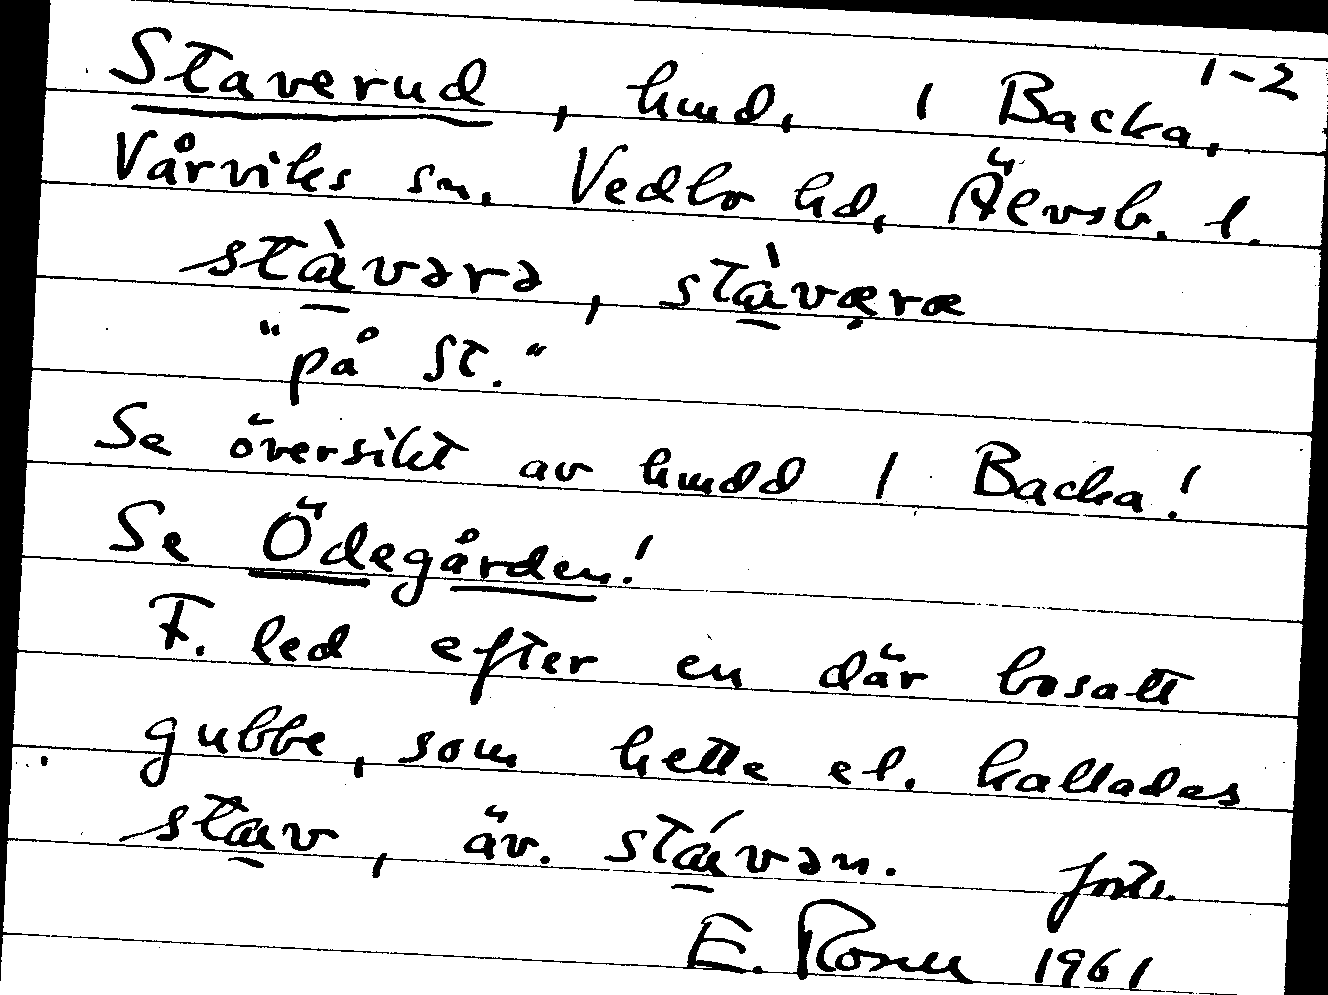 1-2
Staverud, hmd, i Backa,
Vårviks sn. Vedbo hd, Älvsb. l.
stàvərə, stàværæ
"på St."
Se översikt av hmdd i Backa!
Se Ödegården!
F. led efter en där bosatt
gubbe, som hette el. kallades
stav, äv. stávən. forts.
E. Rosell 1961